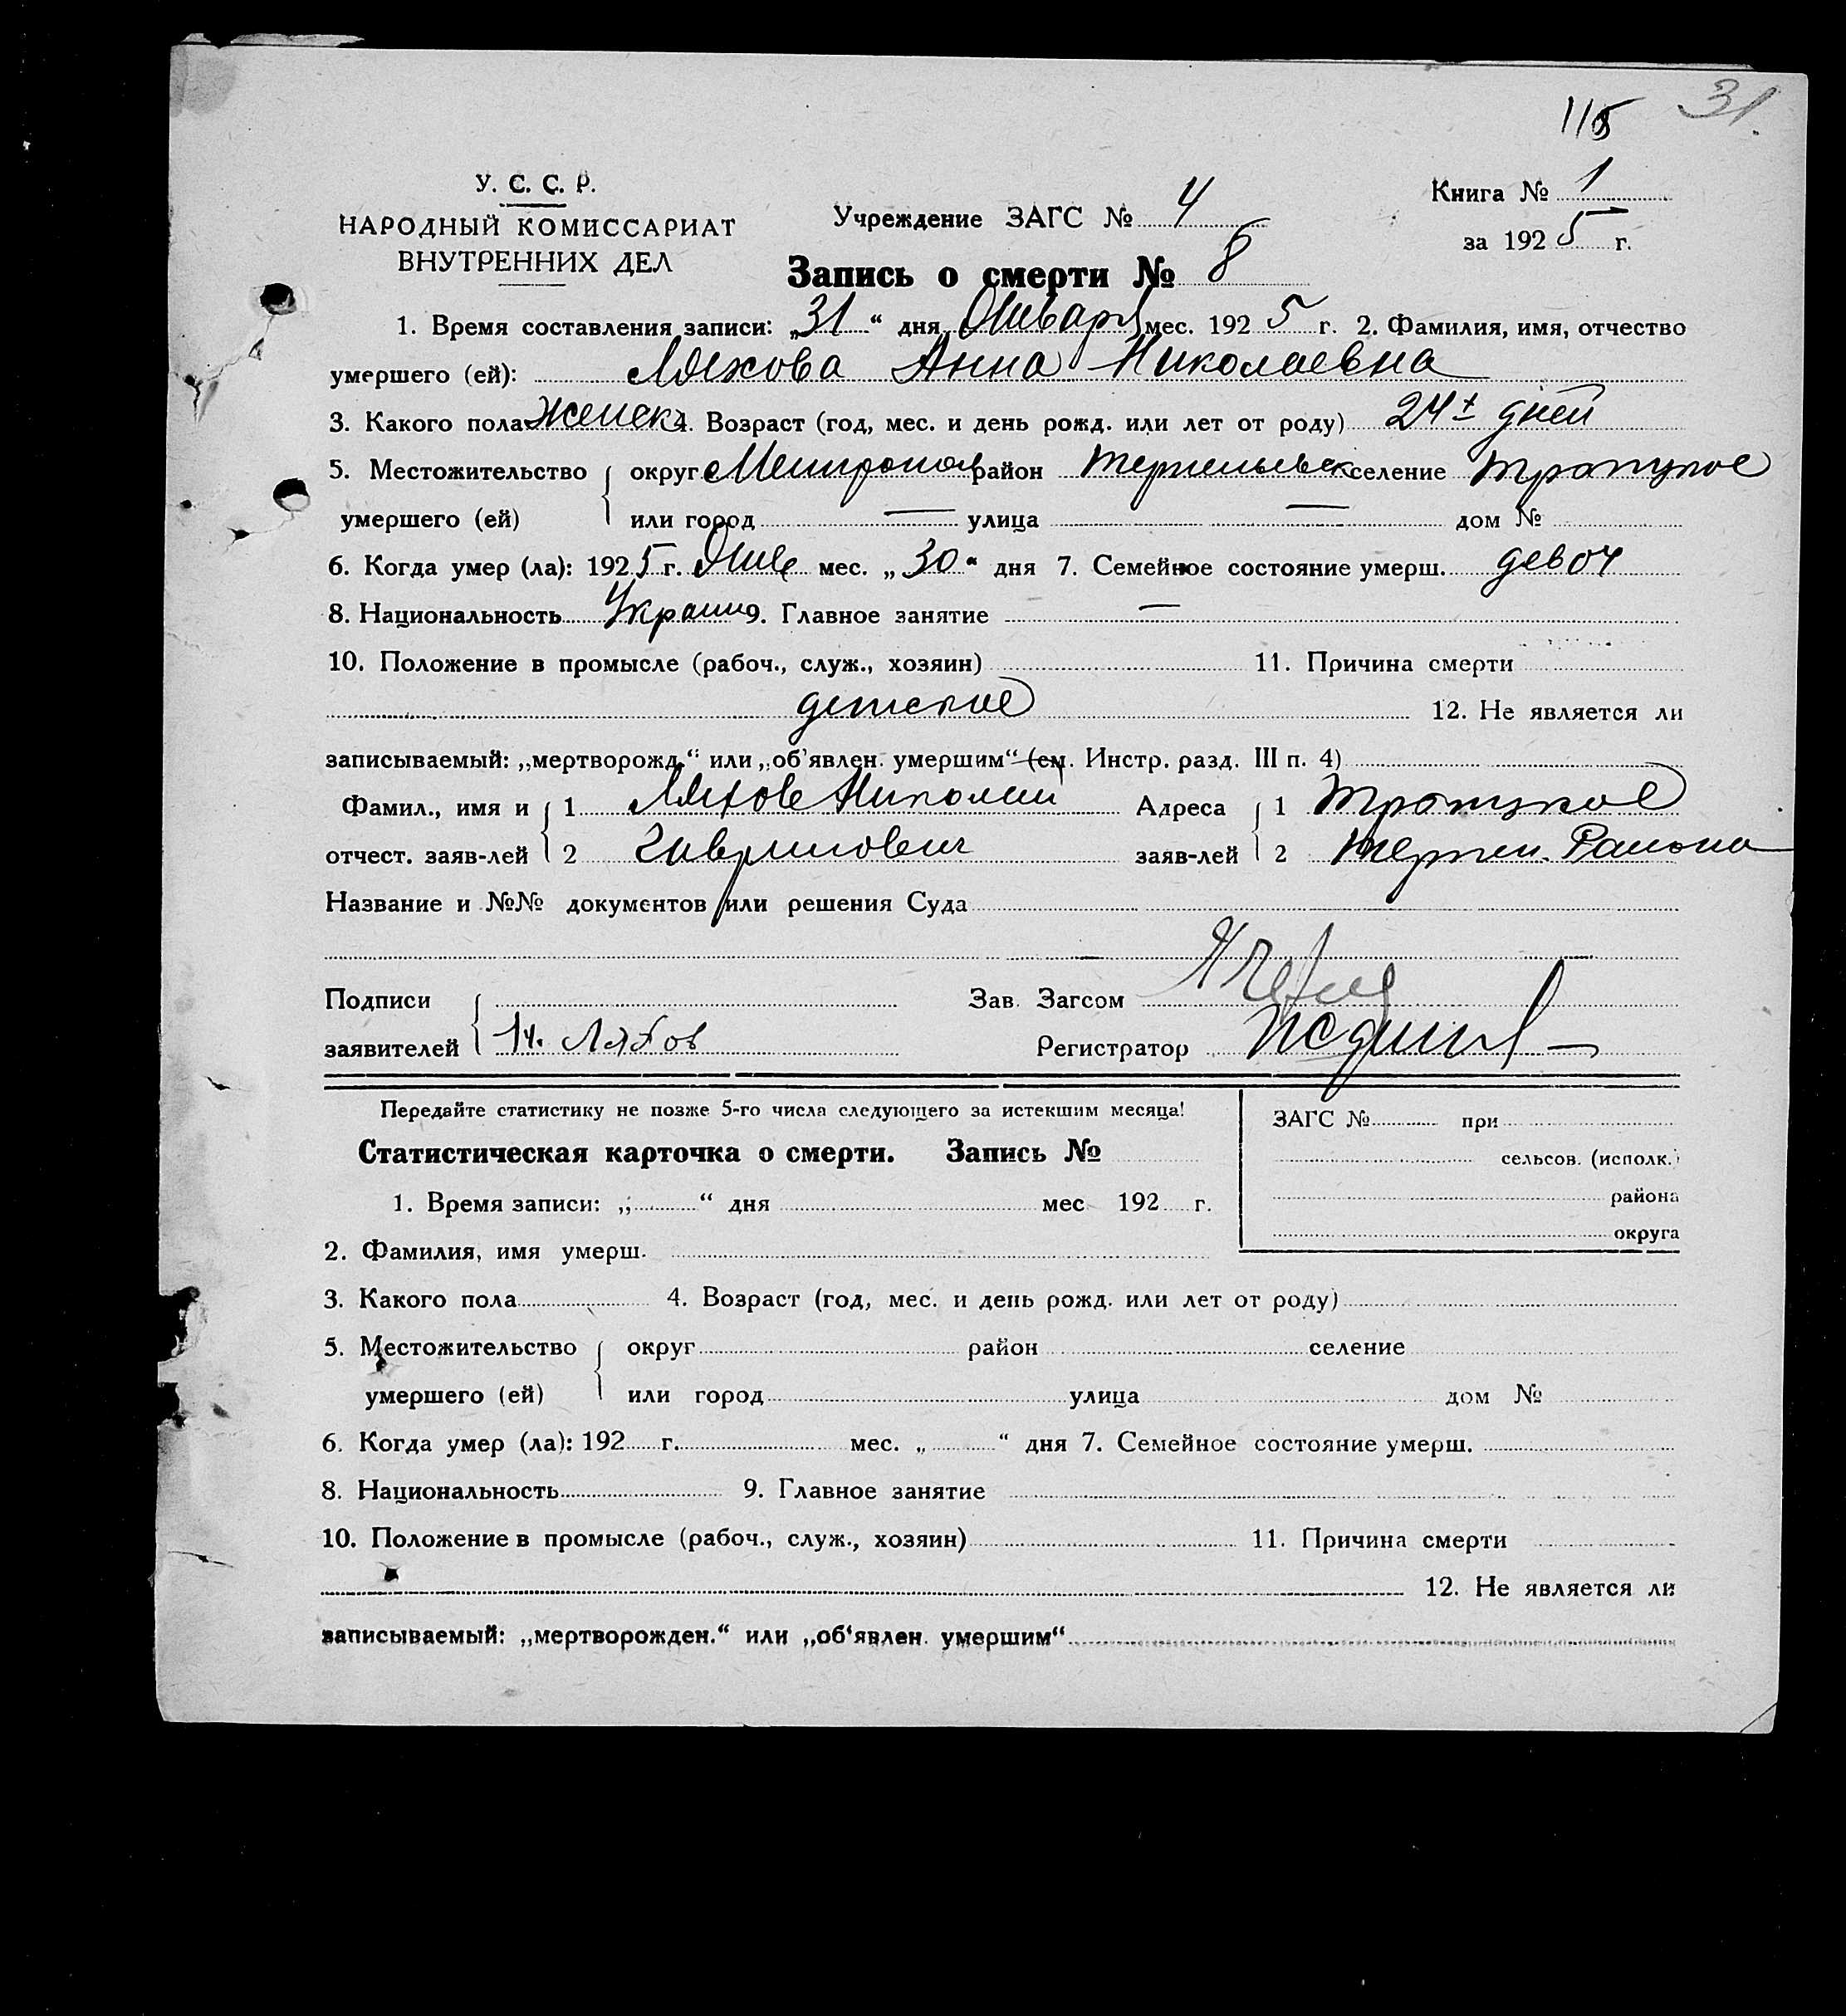 31.
115
У. С. С. Р.
НАРОДНЫЙ КОМИССАРИАТ
ВНУТРЕННИХ ДЕЛ
Учреждение ЗАГС № 4
Книга № 1
за 1925 г.
Запись о смерти №
1. Время составления записи: „31“ дня Января мес. 1925 г. 2. Фамилия, имя, отчество
умершего (ей): Ляхова Анна Николаевна
3. Какого пола женск 4. Возраст (год, мес. и день рожд. или лет от роду) 24х дней
5. Местожительство округ Мелитопол район селение Троицкое
умершего (ей) или город — улица — дом №
6. Когда умер (ла): 1925 г. Янв мес. „30“ дня 7. Семейное состояние умерш. девоч
8. Национальность Украин 9. Главное занятие —
10. Положение в промысле (рабоч., служ., хозяин) 11. Причина смерти
детское 12. Не является ли
записываемый: „мертворожд.“ или „об'явлен. умершим“ (см. Инстр. разд. III п. 4)
Фамил., имя и 1 Ляхов Николай Адреса 1 Троицкое
отчест. заяв-лей 2 Гаврилович заяв-лей 2 Района
Название и №№ документов или решения Суда
Подписи Зав. Загсом
заявителей Н. Ляхов Регистратор
Передайте статистику не позже 5-го числа следующего за истекшим месяца!
ЗАГС № при
Статистическая карточка о смерти. Запись №
сельсов. (исполк.)
района
1. Время записи: „ “ дня мес 192 г.
округа
2. Фамилия, имя умерш.
3. Какого пола 4. Возраст (год, мес. и день рожд. или лет от роду)
5. Местожительство округ район селение
умершего (ей) или город улица дом №
6. Когда умер (ла): 192 г. мес. „ “ дня 7. Семейное состояние умерш.
8. Национальность 9. Главное занятие
10. Положение в промысле (рабоч., служ., хозяин) 11. Причина смерти
12. Не является ли
записываемый: „мертворожден.“ или „об'явлен. умершим“